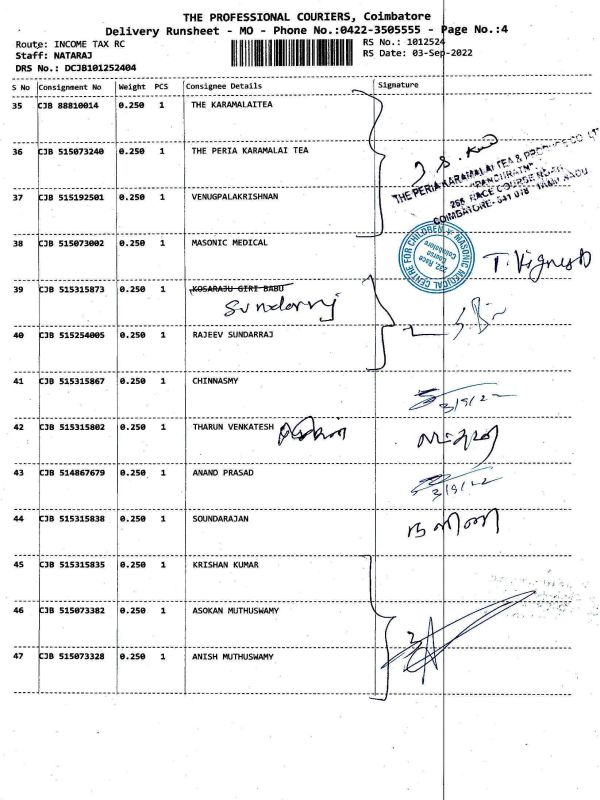 THE PROFESSIONAL COURIERS, Coimbatore
Delivery Runsheet - MO - Phone No.:0422-3505555 - Page No.:4
Route: INCOME TAX RC
RS No.: 1012524
Staff: NATARAJ
RS Date: 03-Sep-2022
DRS No.: DCJB101252404
S No Consignment No Weight PCS Consignee Details Signature
35 CJB 88810014 0.250 1 THE KARAMALAITEA
36 CJB 515073240 0.250 1 THE PERIA KARAMALAI TEA
THE PERIA KARAMALAI TEA & PRODUCE CO. LT
"PANCHRATN"
266, RACE COURSE ROAD,
COIMBATORE- 641 018 TAMIL NADU
37 CJB 515192501 0.250 1 VENUGPALAKRISHNAN
38 CJB 515073002 0.250 1 MASONIC MEDICAL
MASONIC MEDICAL CENTRE FOR CHILDREN
232, Race
Course
Coimbatore
T. Vignesh
39 CJB 515315873 0.250 1 KOSARAJU GIRI BABU
Sundarraj
40 CJB 515254005 0.250 1 RAJEEV SUNDARRAJ
41 CJB 515315867 0.250 1 CHINNASMY
3/9/22
42 CJB 515315802 0.250 1 THARUN VENKATESH
43 CJB 514867679 0.250 1 ANAND PRASAD
3/9/22
44 CJB 515315838 0.250 1 SOUNDARAJAN
45 CJB 515315835 0.250 1 KRISHAN KUMAR
46 CJB 515073382 0.250 1 ASOKAN MUTHUSWAMY
47 CJB 515073328 0.250 1 ANISH MUTHUSWAMY